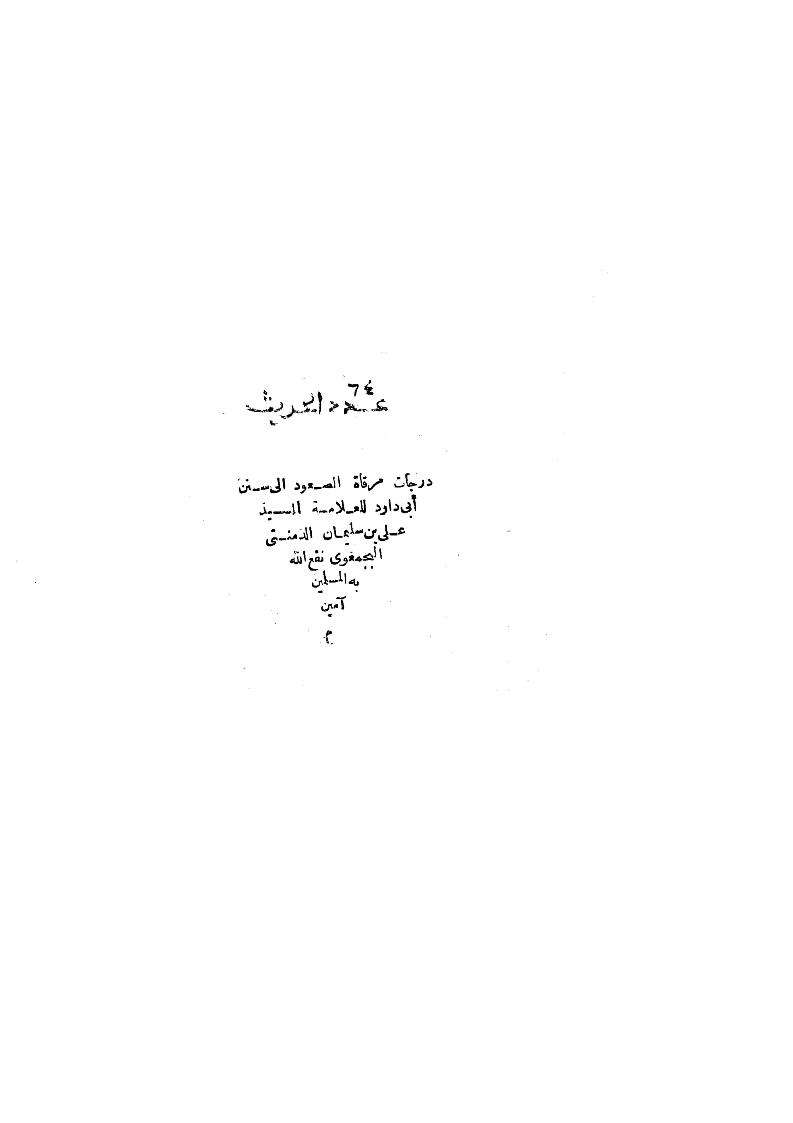 ٦٤
عدد الحديث
درجات مرقاة الصعود الى سنن
أبى داود للعلامة السيد
على بن سليمان الدمنتى
البجمغوى نفع الله
به المسلمين
آمين
م